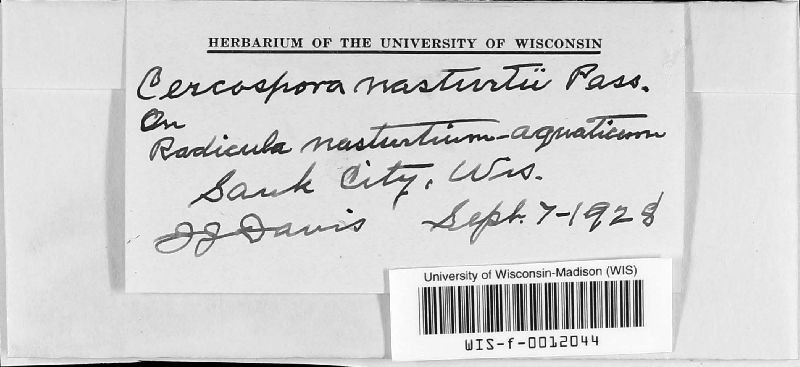 HERBARIUM OF THE UNIVERSITY OF WISCONSIN
Cercospora nasturtii Pass.
On
Radicula nasturtium-aquaticum
Sauk City, Wis.
JJ Davis Sept. 7-1928
University of Wisconsin-Madison (WIS)
WIS-f-0012044